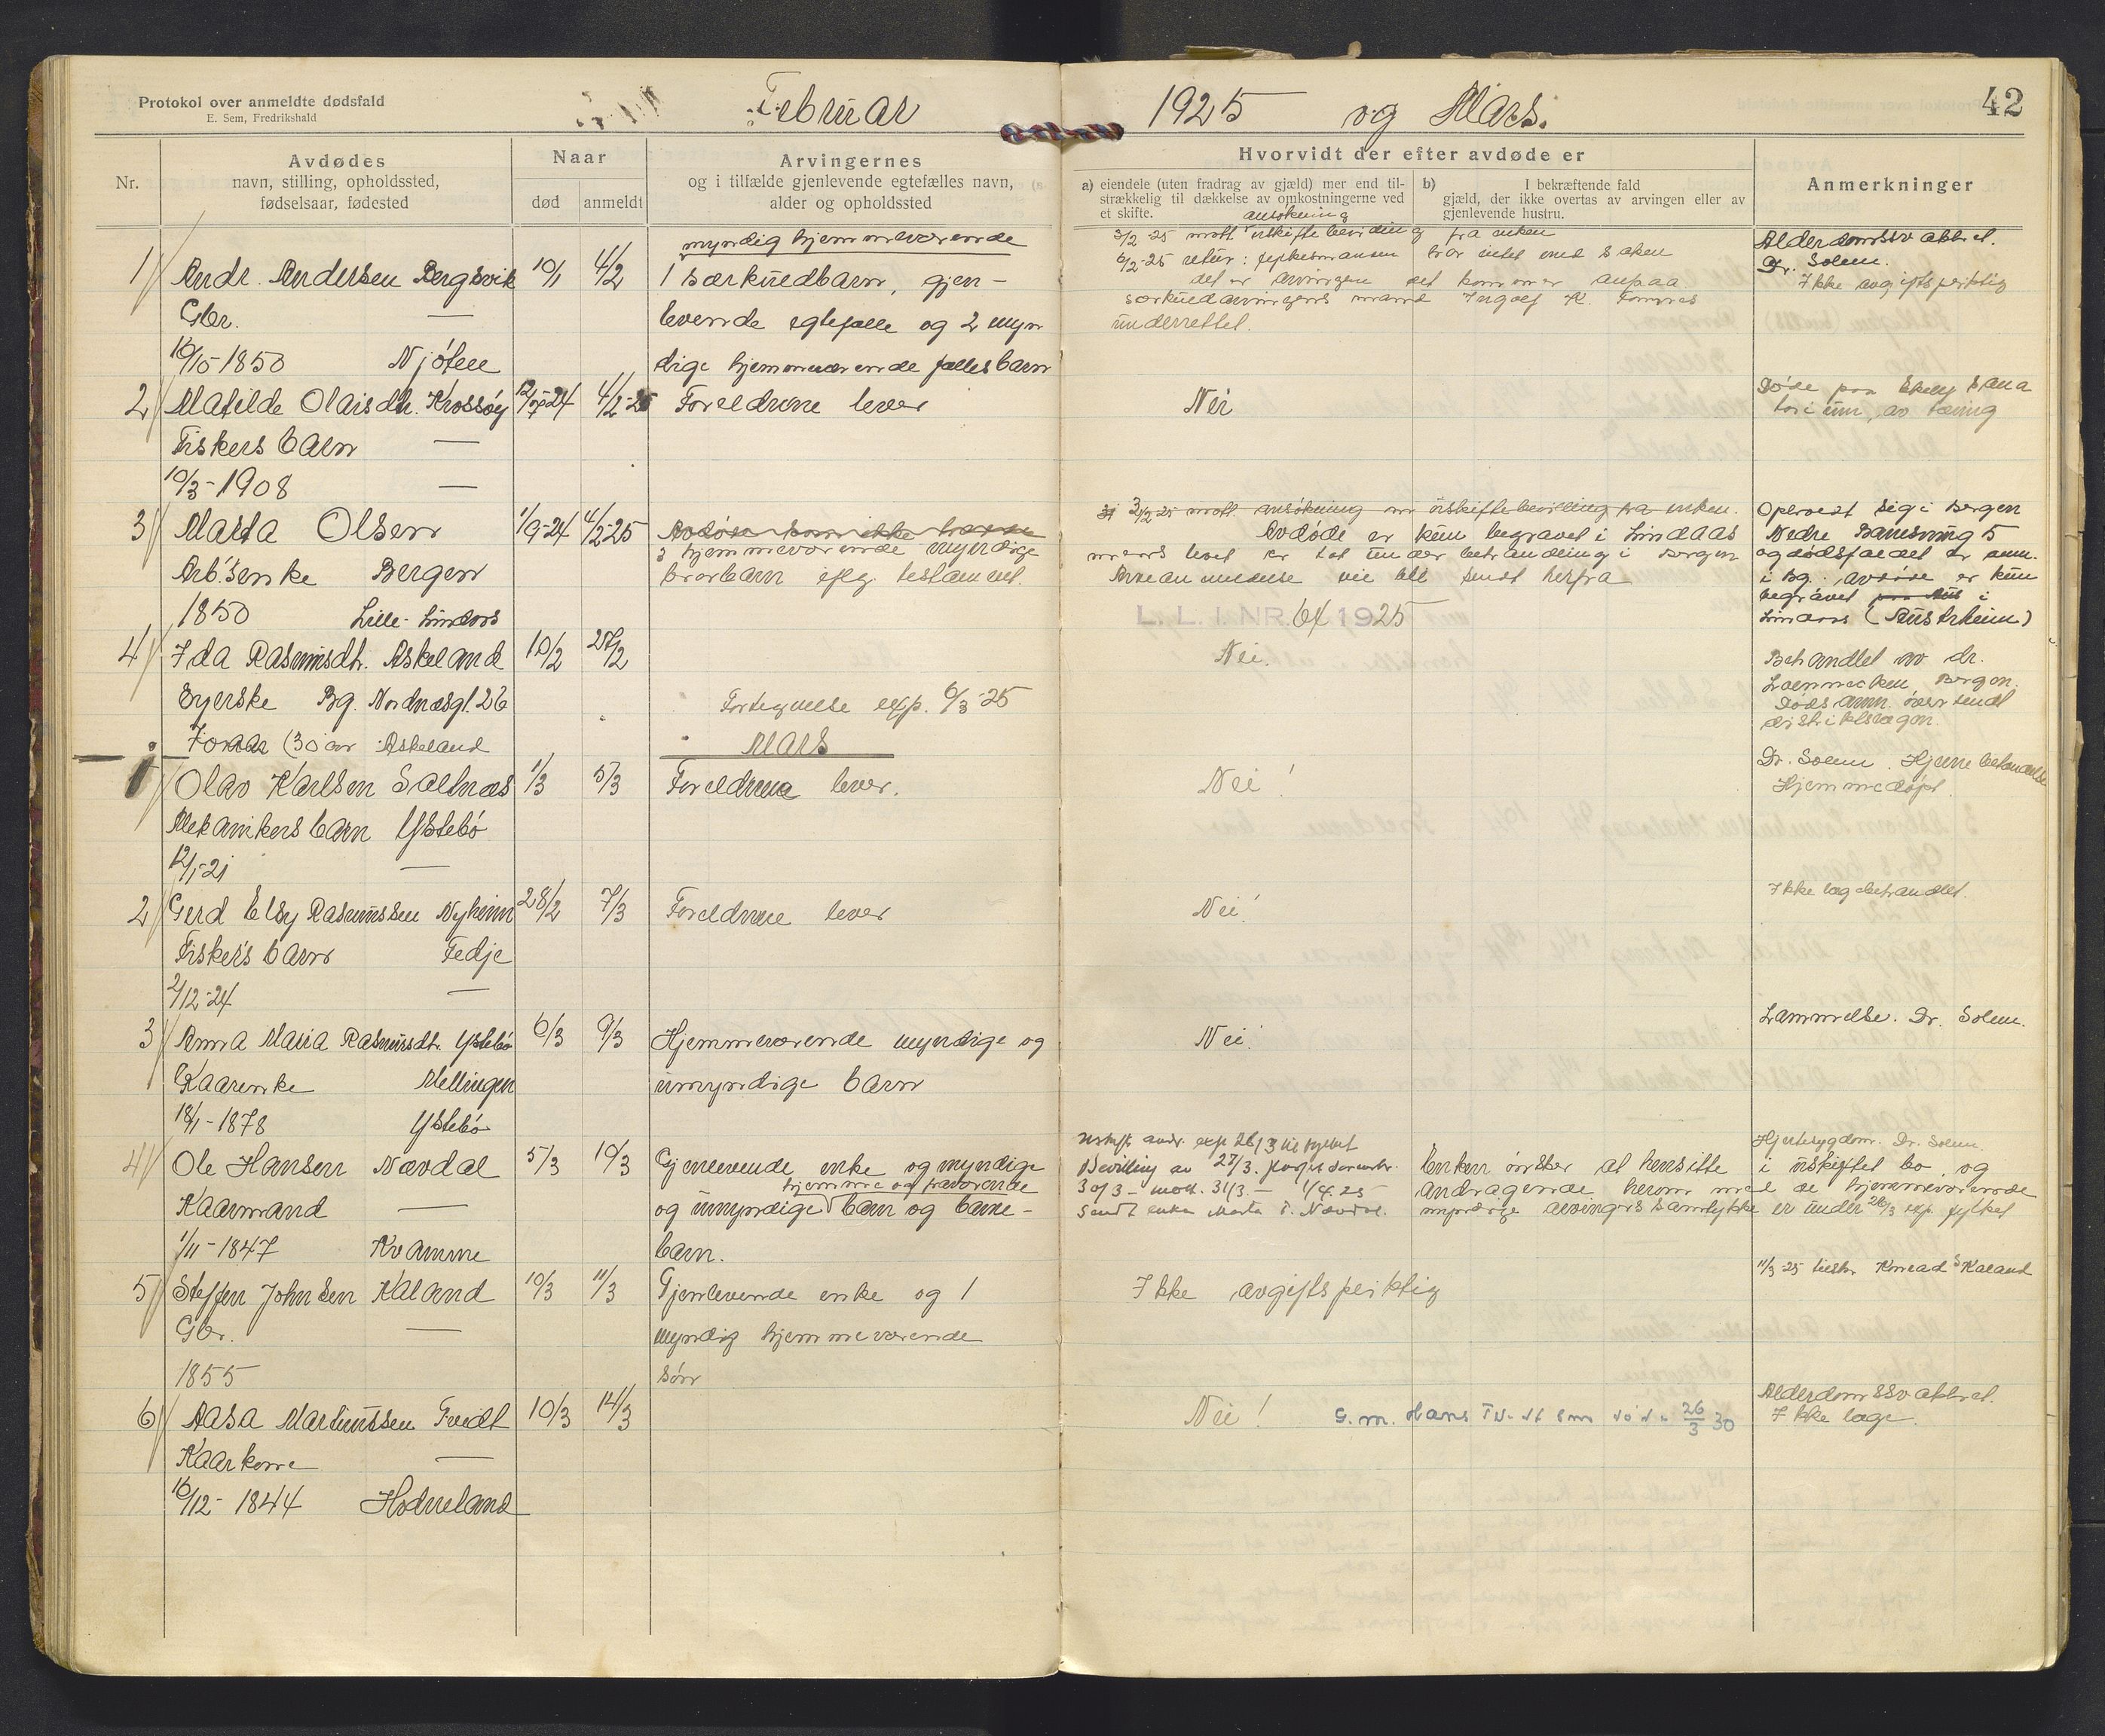 Protokol over anmeldte dødsfald
E. Sem, Fredrikshald
Februar 1925 og Mars.
42
Nr.
Avdødes
navn, stilling, opholdssted,
fødselsaar, fødested
Naar
død
anmeldt
Arvingernes
og i tilfælde gjenlevende egtefælles navn,
alder og opholdssted
Hvorvidt der efter avdøde er
a) eiendele (uten fradrag av gjæld) mer end til-
strækkelig til dækkelse av omkostningerne ved
et skifte.
b) I bekræftende fald
gjæld, der ikke overtas av arvingen eller av
gjenlevende hustru.
Anmerkninger
1 Andr. Andersen Bergsvik 10/1 4/2
Gbr. —
10/10 1850 Njøten
myndig hjemmeværende
1 særkuldbarn, gjen-
levende egtefælle og 2 myn
dige hjemmeværende fællesbarn
ansøkning
3/2-25 mott uskiftebevilling fra enken
6/2-25 retur: fylkesmannen har intet med saken
det er arvingen det kommer anpaa
særkuldarvingens mand Ingolf K.
underrettet.
Alderdomssvakhet.
Dr. Solem.
Ikke avgiftspliktig
2 Matilde Olaisdtr. Krossøy 4/2-25
Fiskers barn —
10/3-1908 —
Foreldrene lever
Nei
Døde paa Skely Sana
torium, av tæring
3 Marta Olsen 1/9-24 4/2-25
Arb.enke Bergen
1850 Lille-Lindaas
Avdøde som ikke
3 hjemmeværende myndige
brorbarn iflg. testament.
3/2 25 mott. ansökning om uskiftebevilling fra enken.
Avdøde er kun begravet i Lindaas
mens boet er tat under behandling i Bergen
vil bli sendt herfra
L. L. I. NR. 64 1925
Opholdt sig i Bergen
Nedre 5
og dødsfaldet er anm.
i Bg. avdøde er kun
begravet i
Lindaas (Austrheim)
4 Ida Rasmusdtr. Askeland 10/2 28/2
Syerske Bg. Nordnæsgt. 26
(30 aar Askeland
Fortegnelse exp. 6/3-25
Nei.
Behandlet av dr.
Loennecken Bergen.
Dødsanm. oversendt
Mars
1 Olav Karlsen Saltnæs 1/3 5/3
Mekanikers barn Ystebø
12/1-21 —
Foreldrene lever.
Nei!
Dr. Solem. Hjernebetændelse
Hjemmedøpt.
2 Gerd Elsy Rasmussen Nyheim 28/2 7/3
Fiskers barn Fedje
2/12-24 —
Foreldrene lever
Nei!
Ikke lægebehandlet.
3 Anna Maria Rasmusdtr. Ystebø 6/3 9/3
Kaarenke Mellingen
18/1-1878 Ystebø
Hjemmeværende myndige og
umyndige barn
Nei!
Lammelse. Dr. Solem.
4 Ole Hansen Nævdal 5/3 10/3
Kaarmand —
1/11-1847 Kvamme
Gjenlevende enke og myndige
hjemme og fraværende
og umyndige barn og barne-
barn.
Uskift. andr. exp 26/3 til fylket
Bevilling av 27/3.
30/3 - mott. 31/3. - 1/4.25
Sendt enke Marta Nævdal.
Enken ønsker at hensitte i uskiftet bo, og
andragende herom med de hjemmeværende
myndige arvingers samtykke er under 26/3 exp. fylket
Hjertesygdom. Dr. Solem
5 Steffen Johnsen Kaland 10/3 11/3
Gbr. —
1855
Gjenlevende enke og 1
myndig hjemmeværende
søn
Ikke avgiftspliktig
11/3 25 Konrad S Kaland
6 Aasa Martinussen Tvedt 10/3 14/3
Kaarkone —
16/12-1844 Hodneland
Nei! G.m. Hans Tvedt som døde 26/3 30
Alderdomssvakhet.
Ikke læge.